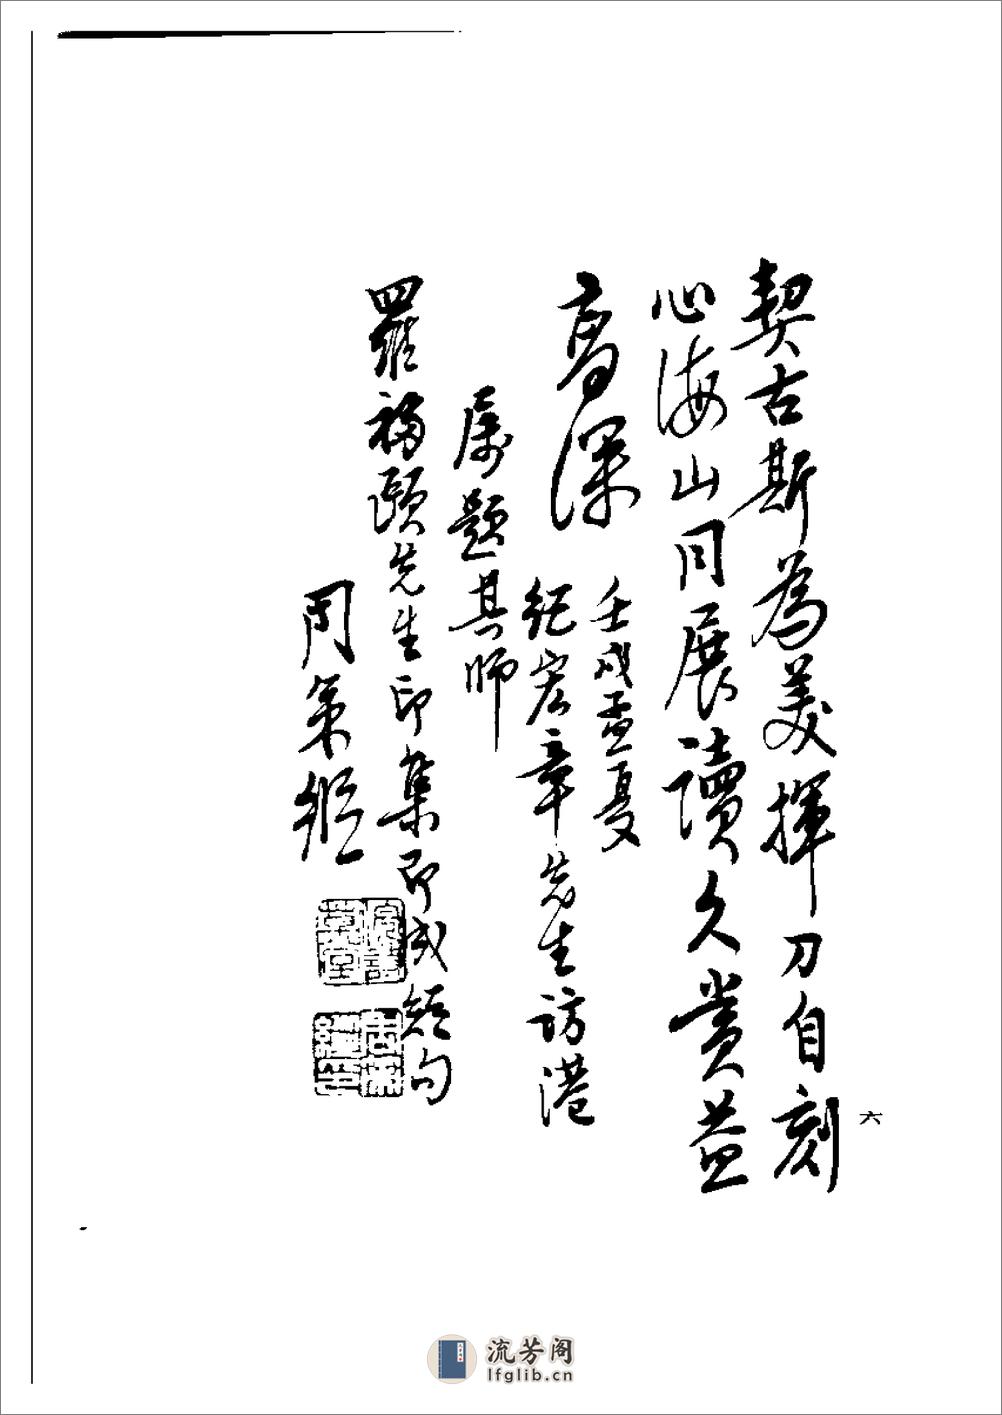 契古斯為美揮刀自刻
心海山同展讀久賞益
高深
壬戌孟夏
紀宏章先生訪港
属題其師
羅福頤先生印集即成短句
周策縱
六
流芳阁
lfglib.cn